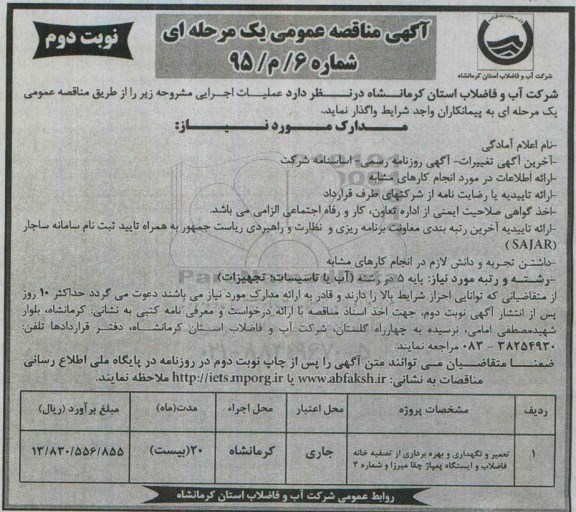 آگهی مناقصه عمومی یک مرحله ای
شماره ۶/م/۹۵
نوبت دوم
شرکت آب و فاضلاب استان کرمانشاه
شرکت آب و فاضلاب استان کرمانشاه درنظر دارد عملیات اجرایی مشروحه زیر را از طریق مناقصه عمومی
یک مرحله ای به پیمانکاران واجد شرایط واگذار نماید.
مدارک مورد نیاز:
-نام اعلام آمادگی
-آخرین آگهی تغییرات- آگهی روزنامه رسمی- اساسنامه شرکت
-ارائه اطلاعات در مورد انجام کارهای مشابه
-ارائه تاییدیه یا رضایت نامه از شرکتهای طرف قرارداد
-اخذ گواهی صلاحیت ایمنی از اداره تعاون، کار و رفاه اجتماعی الزامی می باشد.
-ارائه تاییدیه آخرین رتبه بندی معاونت برنامه ریزی و نظارت و راهبردی ریاست جمهور به همراه تایید ثبت نام سامانه ساجار
(SAJAR)
-داشتن تجربه و دانش لازم در انجام کارهای مشابه
-رشته و رتبه مورد نیاز: پایه ۵ در رشته (آب یا تاسیسات؛ تجهیزات)
از متقاضیانی که توانایی احراز شرایط بالا را دارند و قادر به ارائه مدارک مورد نیاز می باشند دعوت می گردد حداکثر ۱۰ روز
پس از انتشار آگهی نوبت دوم، جهت اخذ اسناد مناقصه با ارائه درخواست و معرفی نامه کتبی به نشانی: کرمانشاه، بلوار
شهیدمصطفی امامی، نرسیده به چهارراه گلستان، شرکت آب و فاضلاب استان کرمانشاه، دفتر قراردادها تلفن:
۳۸۲۵۴۹۳۰ - ۰۸۳ مراجعه نمایند.
ضمنا متقاضیان می توانند متن آگهی را پس از چاپ نوبت دوم در روزنامه در پایگاه ملی اطلاع رسانی
مناقصات به نشانی: www.abfaksh.ir یا http://iets.mporg.ir ملاحظه نمایند.
ردیف مشخصات پروژه محل اعتبار محل اجراء مدت(ماه) مبلغ برآورد (ریال)
۱ تعمیر و نگهداری و بهره برداری از تصفیه خانه فاضلاب و ایستگاه پمپاژ چقا میرزا و شماره ۳ جاری کرمانشاه ۲۰(بیست) ۱۳/۸۳۰/۵۵۶/۸۵۵
روابط عمومی شرکت آب و فاضلاب استان کرمانشاه